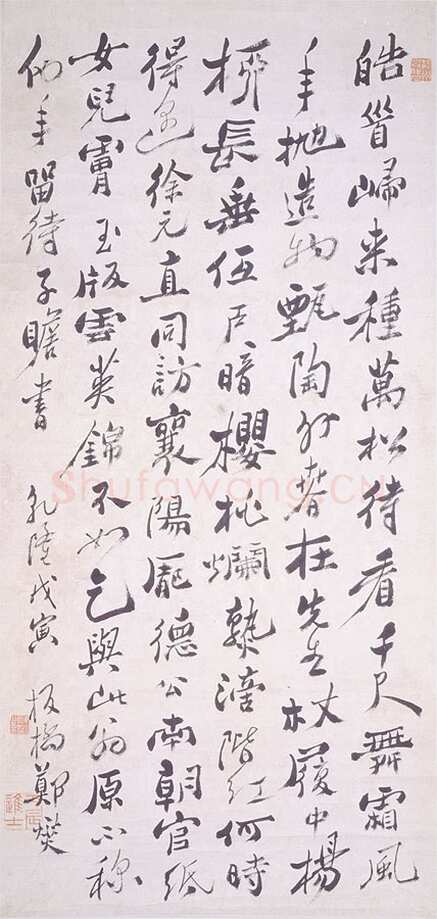 皓首歸来種萬松待看千尺舞霜風
年抛造物甄陶外春在先生杖履中楊
桺長垂低戶暗櫻桃爛熟滴階紅何時
得徐元直同訪襄陽龐德公南朝官紙
女兒膚玉版雲英錦不如乞與此翁原不稱
他年留待子瞻書 乾隆戊寅 板橋鄭燮
丙辰進士
Shufawang.CN